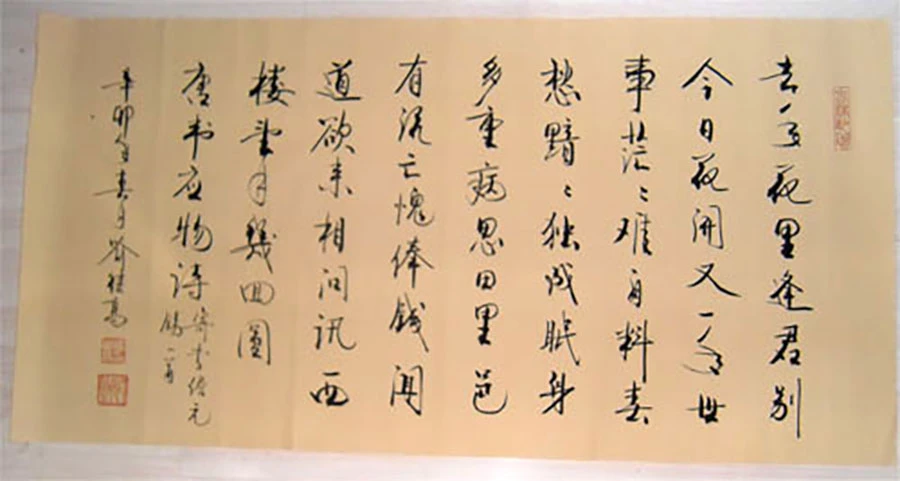 去年花里逢君别
今日花开又一年世
事茫々难自料春
愁黯々独成眠身
多重病思田里邑
有流亡愧俸钱闻
道欲来相问讯西
楼望月几回圆
唐韦应物诗寄李儋元
锡一首
辛卯年春月